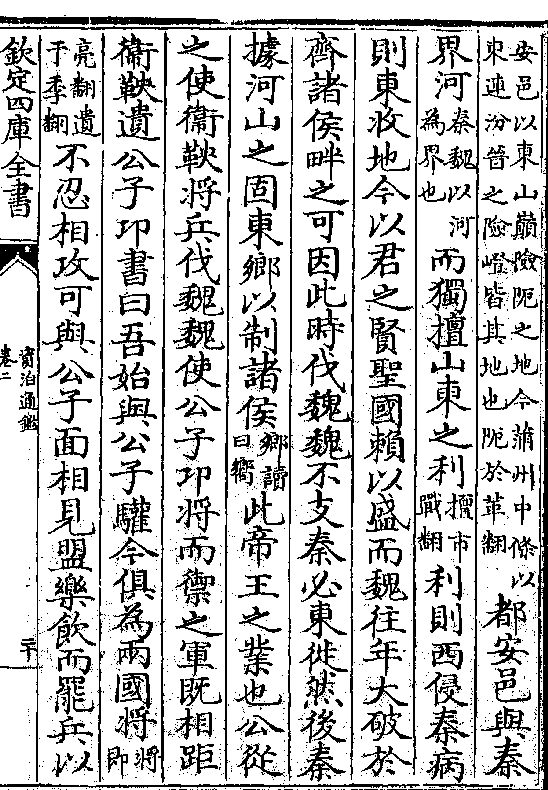 安邑以東山巔險阨之地今蒲州中條以
東連汾晉之險嶝皆其地也阨於革翻
都安邑與秦
界河秦魏以河為界也而獨擅山東之利擅市戰翻利則西侵秦病
則東收地今以君之賢聖國賴以盛而魏往年大破於
齊諸侯畔之可因此時伐魏魏不支秦必東徙然後秦
據河山之固東鄉以制諸侯鄉讀曰嚮此帝王之業也公從
之使衛鞅將兵伐魏魏使公子卬將而禦之軍既相距
衛鞅遺公子卬書曰吾始與公子驩今俱為兩國將將即
亮翻遺于季翻不忍相攻可與公子面相見盟樂飲而罷兵以
欽定四庫全書
資治通鑑
卷二
二十